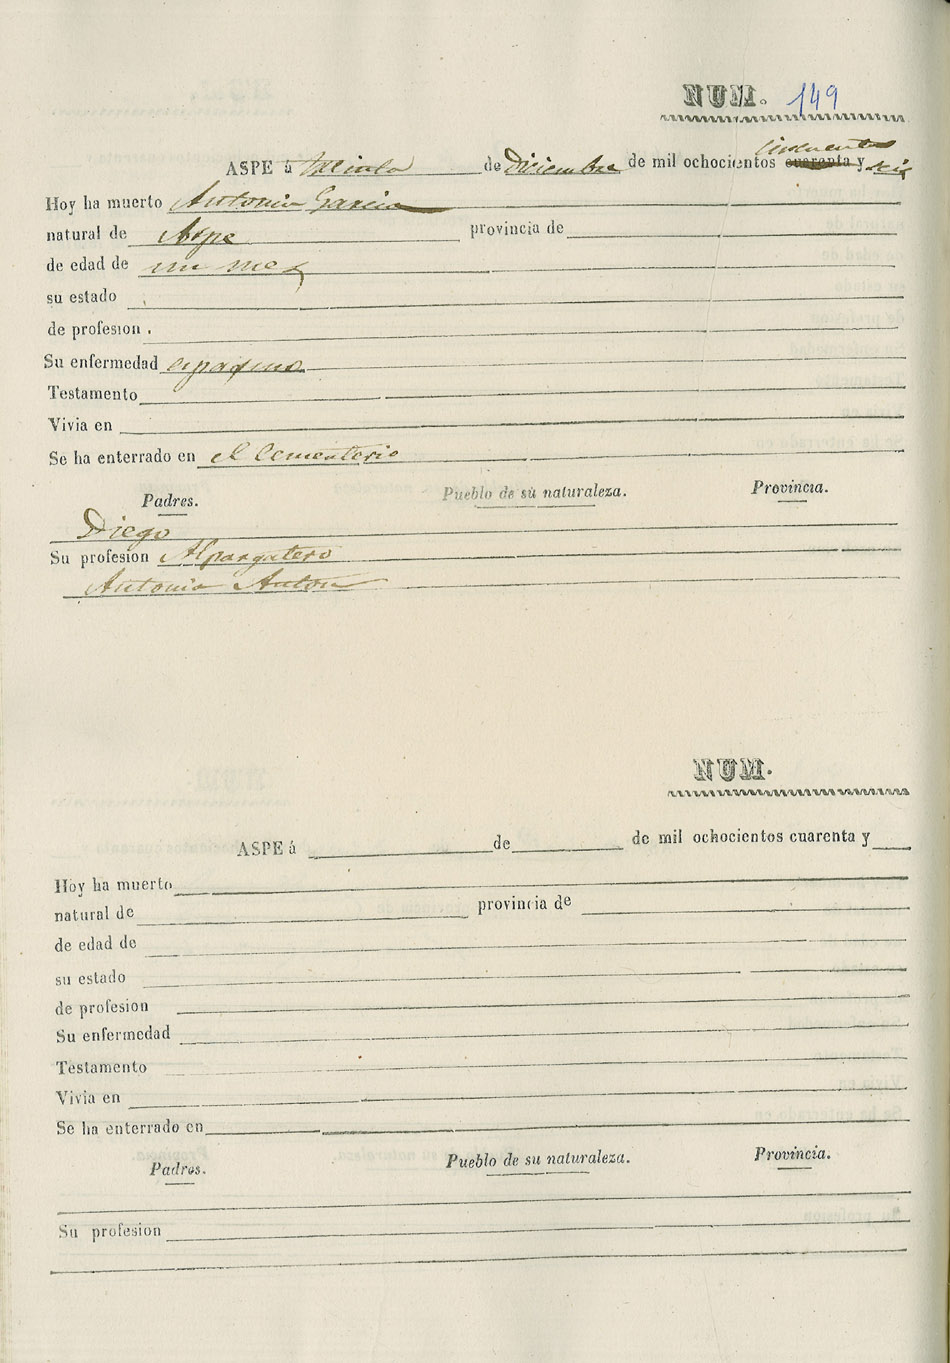 NUM. 149
cincuenta
ASPE á Treinta de Diciembre de mil ochocientos cuarenta y seis
Hoy ha muerto Antonia Garcia
natural de Aspe provincia de
de edad de un mes
su estado
de profesion
Su enfermedad espasmo
Testamento
Vivia en
Se ha enterrado en el Cementerio
Padres. Pueblo de su naturaleza. Provincia.
Diego
Su profesion Alpargatero
Antonia Anton
NUM.
ASPE á de de mil ochocientos cuarenta y
Hoy ha muerto
natural de provincia de
de edad de
su estado
de profesion
Su enfermedad
Testamento
Vivia en
Se ha enterrado en
Padres. Pueblo de su naturaleza. Provincia.
Su profesion